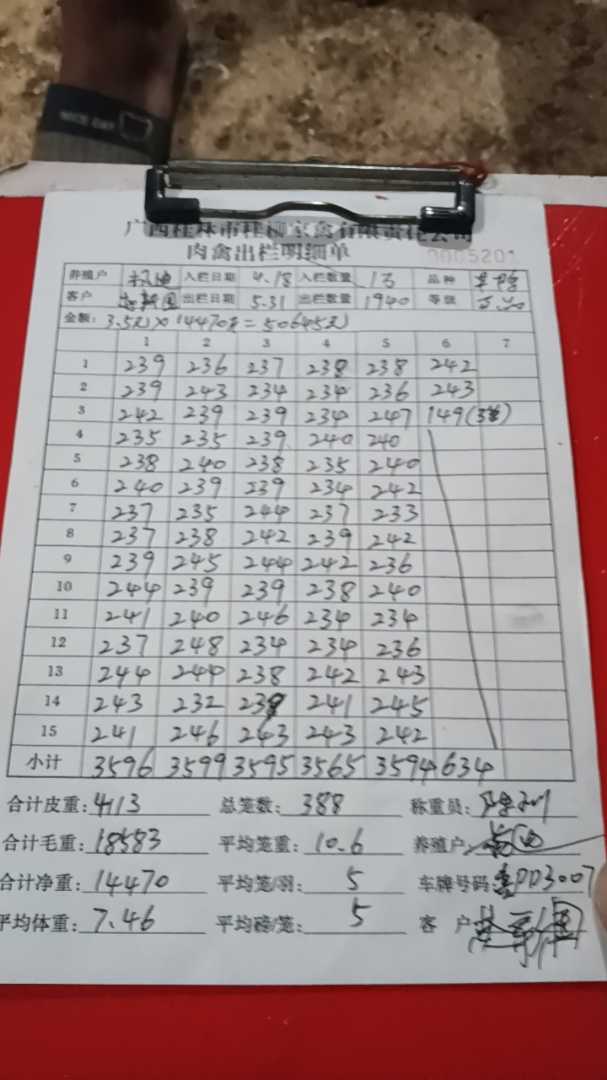 NICE DAY
广西桂林市桂柳家禽有限责任公司
肉禽出栏明细单
0005201
养殖户 入栏日期 4.18 入栏数量 1万 品种
客户 出栏日期 5.31 出栏数量 1940 等级
金额: 3.5元×14470斤=50645元
1 2 3 4 5 6 7
1 239 236 237 238 238 242
2 239 243 234 234 236 243
3 242 239 239 234 247 149(3)
4 235 235 239 240 240
5 238 240 238 235 240
6 240 239 239 234 242
7 237 235 244 237 233
8 237 238 242 239 242
9 239 245 244 242 236
10 244 239 239 238 240
11 241 240 246 234 234
12 237 248 234 234 236
13 244 244 238 242 243
14 243 232 238 241 245
15 241 246 243 243 242
小计 3596 3599 3595 3565 3594 634
合计皮重: 4113 总笼数: 388 称重员:
合计毛重: 18583 平均笼重: 10.6 养殖户
合计净重: 14470 平均笼/羽: 5 车牌号码: DD3007
平均体重: 7.46 平均磅/笼: 5 客户